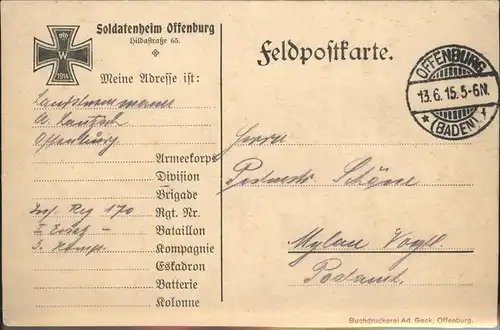 Soldatenheim Offenburg
Hildastraße 65.
W
1914
Meine Adresse ist:
Landsturmmann
Offenburg
Armeekorps
Division
Brigade
Inf. Reg 170 Rgt. Nr.
Bataillon
3. Komp. Kompagnie
Eskadron
Batterie
Kolonne
Feldpostkarte.
OFFENBURG
13.6.15.5-6N.
(BADEN)
Herrn
Schöne
Mylau Vogtl.
Postamt.
Buchdruckerei Ad. Geck, Offenburg.